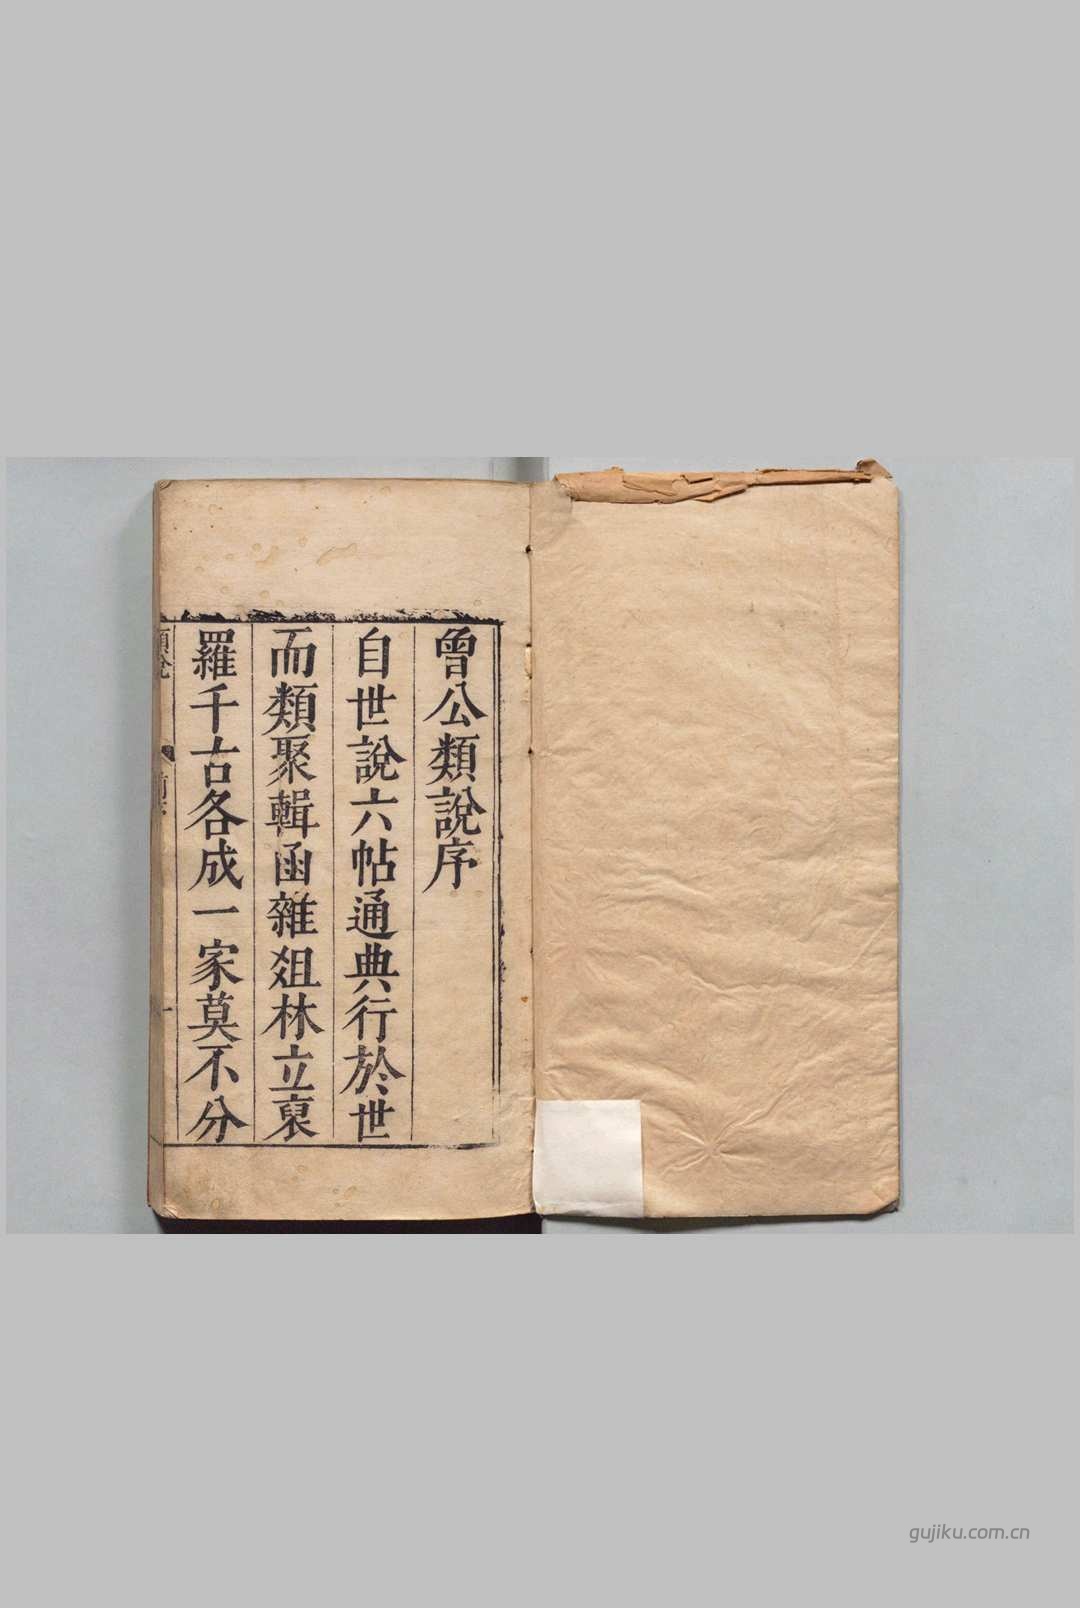 曾公類說序
自世說六帖通典行於世
而類聚輯函雜俎林立裒
羅千古各成一家莫不分
gujiku.com.cn